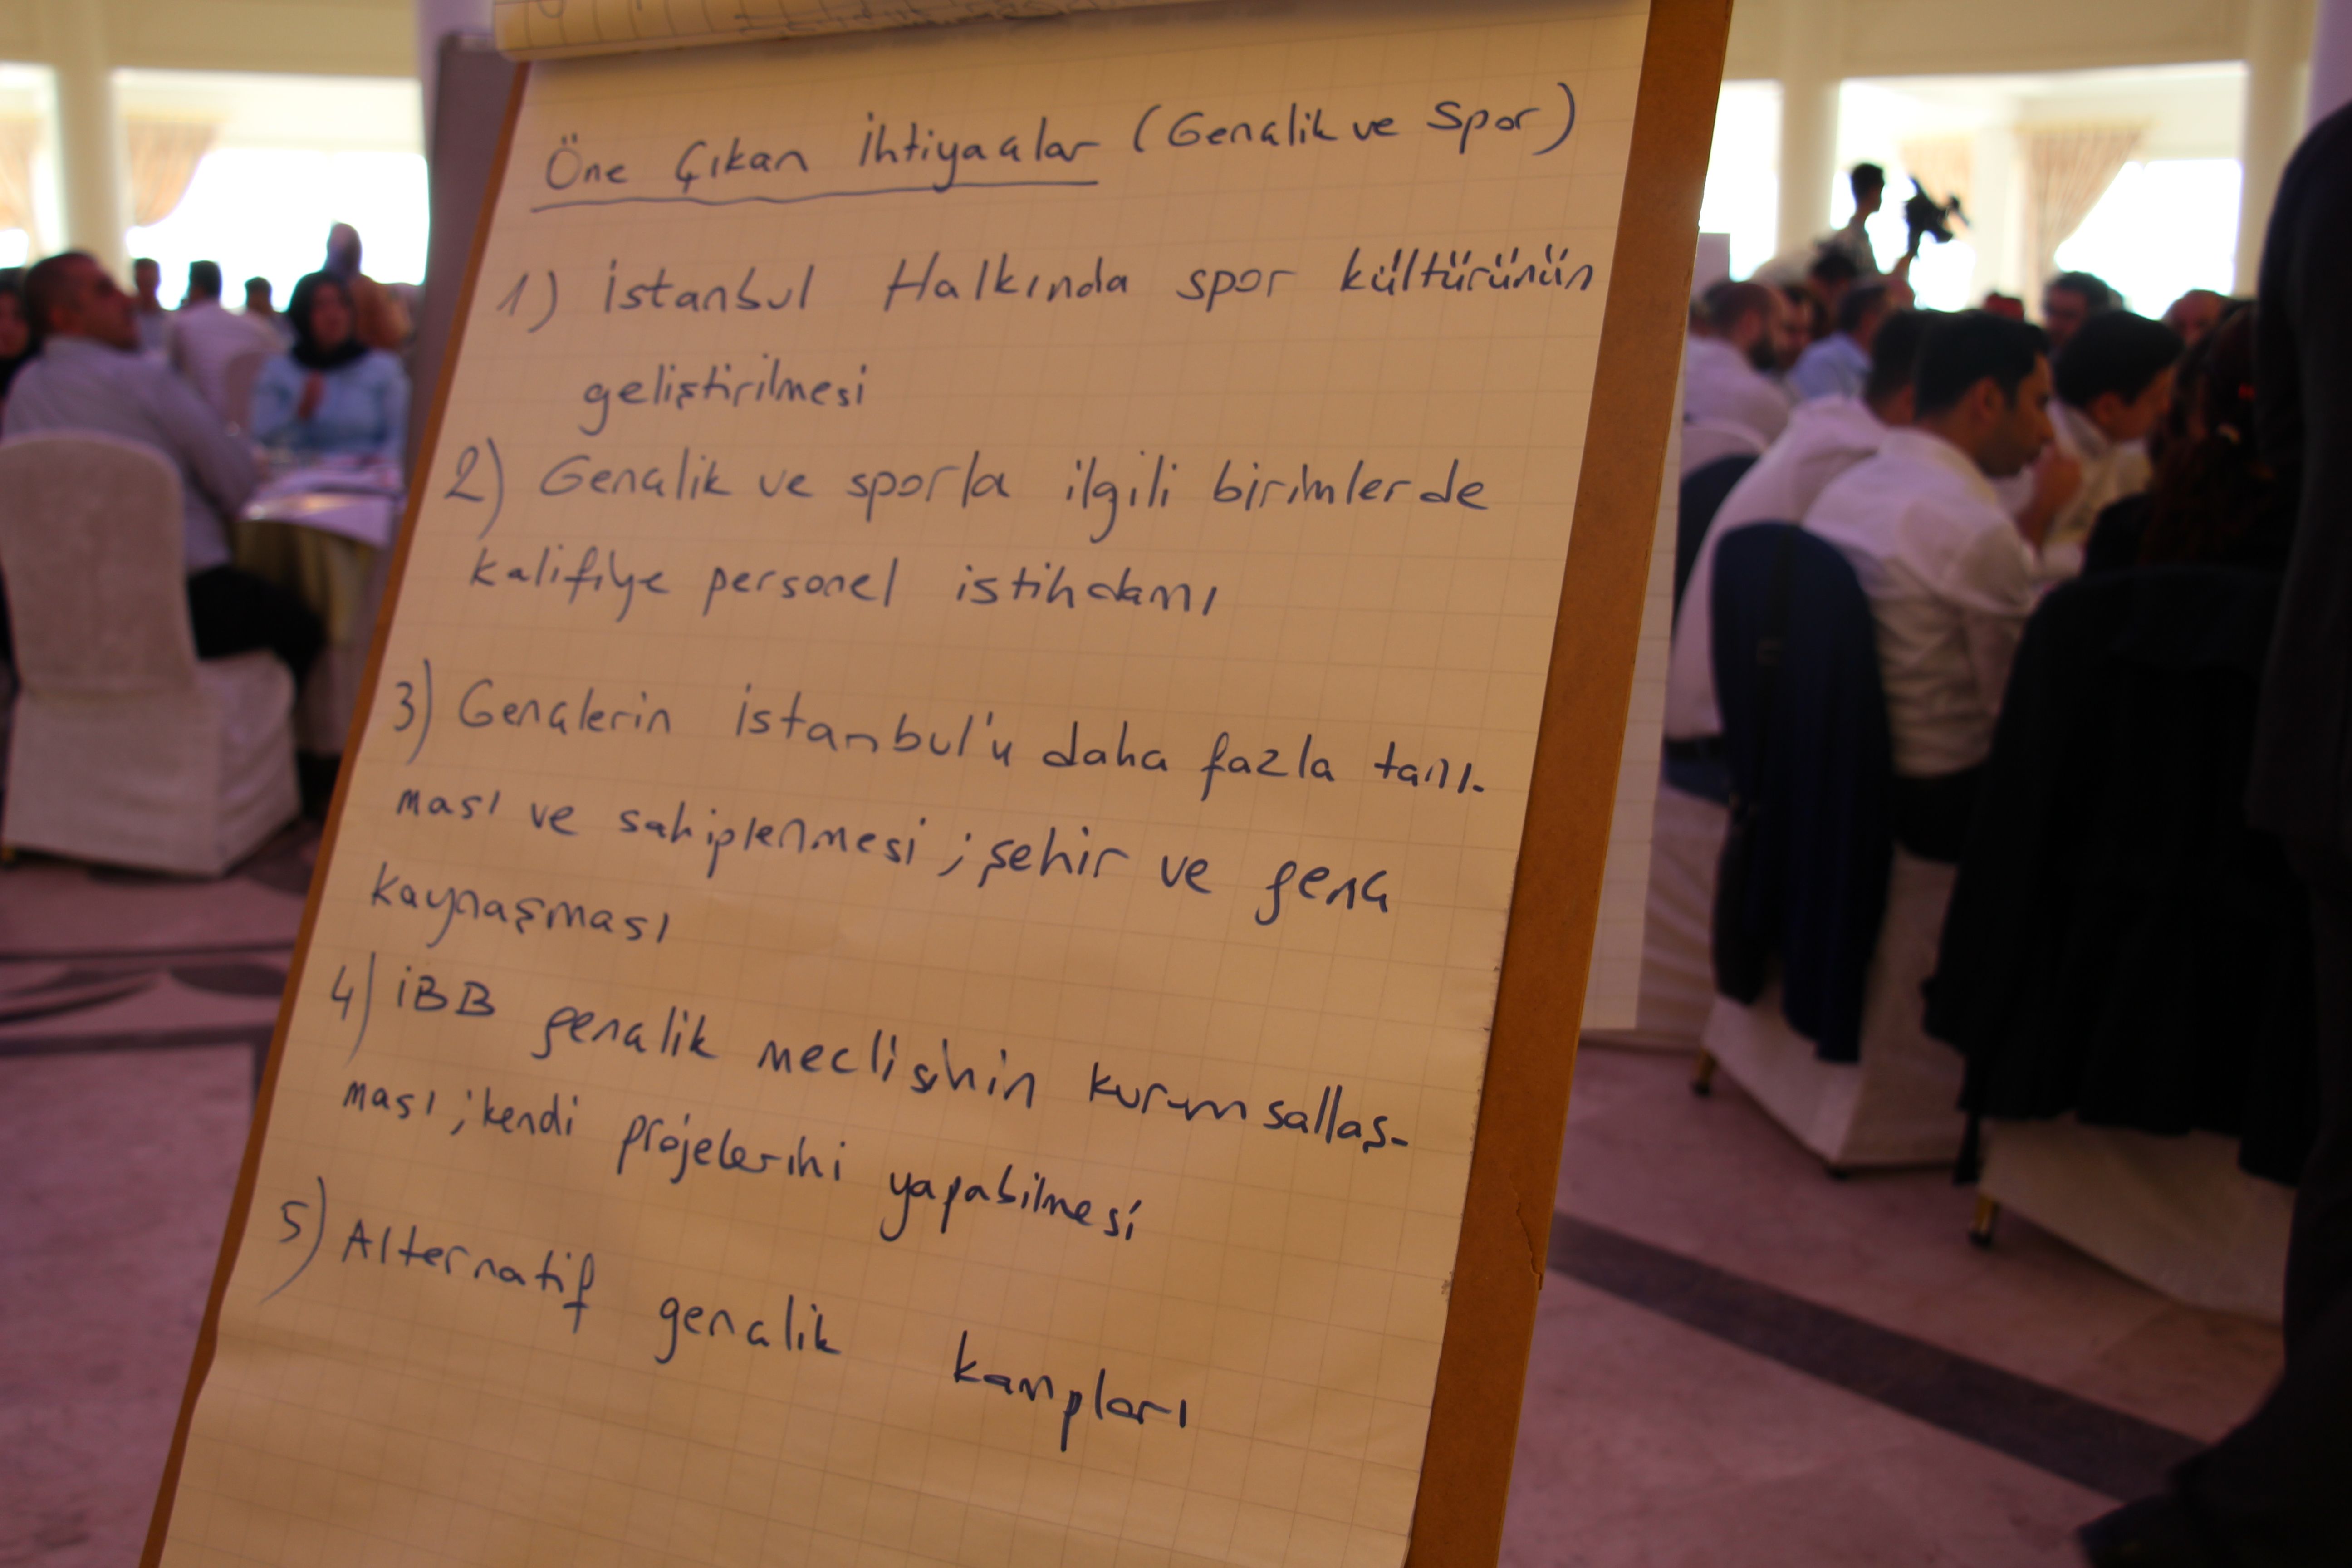 Öne Çıkan İhtiyaçlar (Gençlik ve Spor)
1) İstanbul Halkında spor kültürünün
geliştirilmesi
2) Gençlik ve sporla ilgili birimlerde
kalifiye personel istihdamı
3) Gençlerin İstanbul'u daha fazla tanı-
ması ve sahiplenmesi ; şehir ve genç
kaynaşması
4) İBB gençlik meclisinin kurumsallaş-
ması ; kendi projelerini yapabilmesi
5) Alternatif gençlik kampları